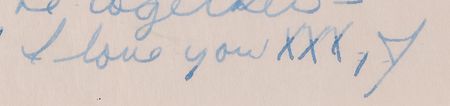 be together –
I love you XXX, Y